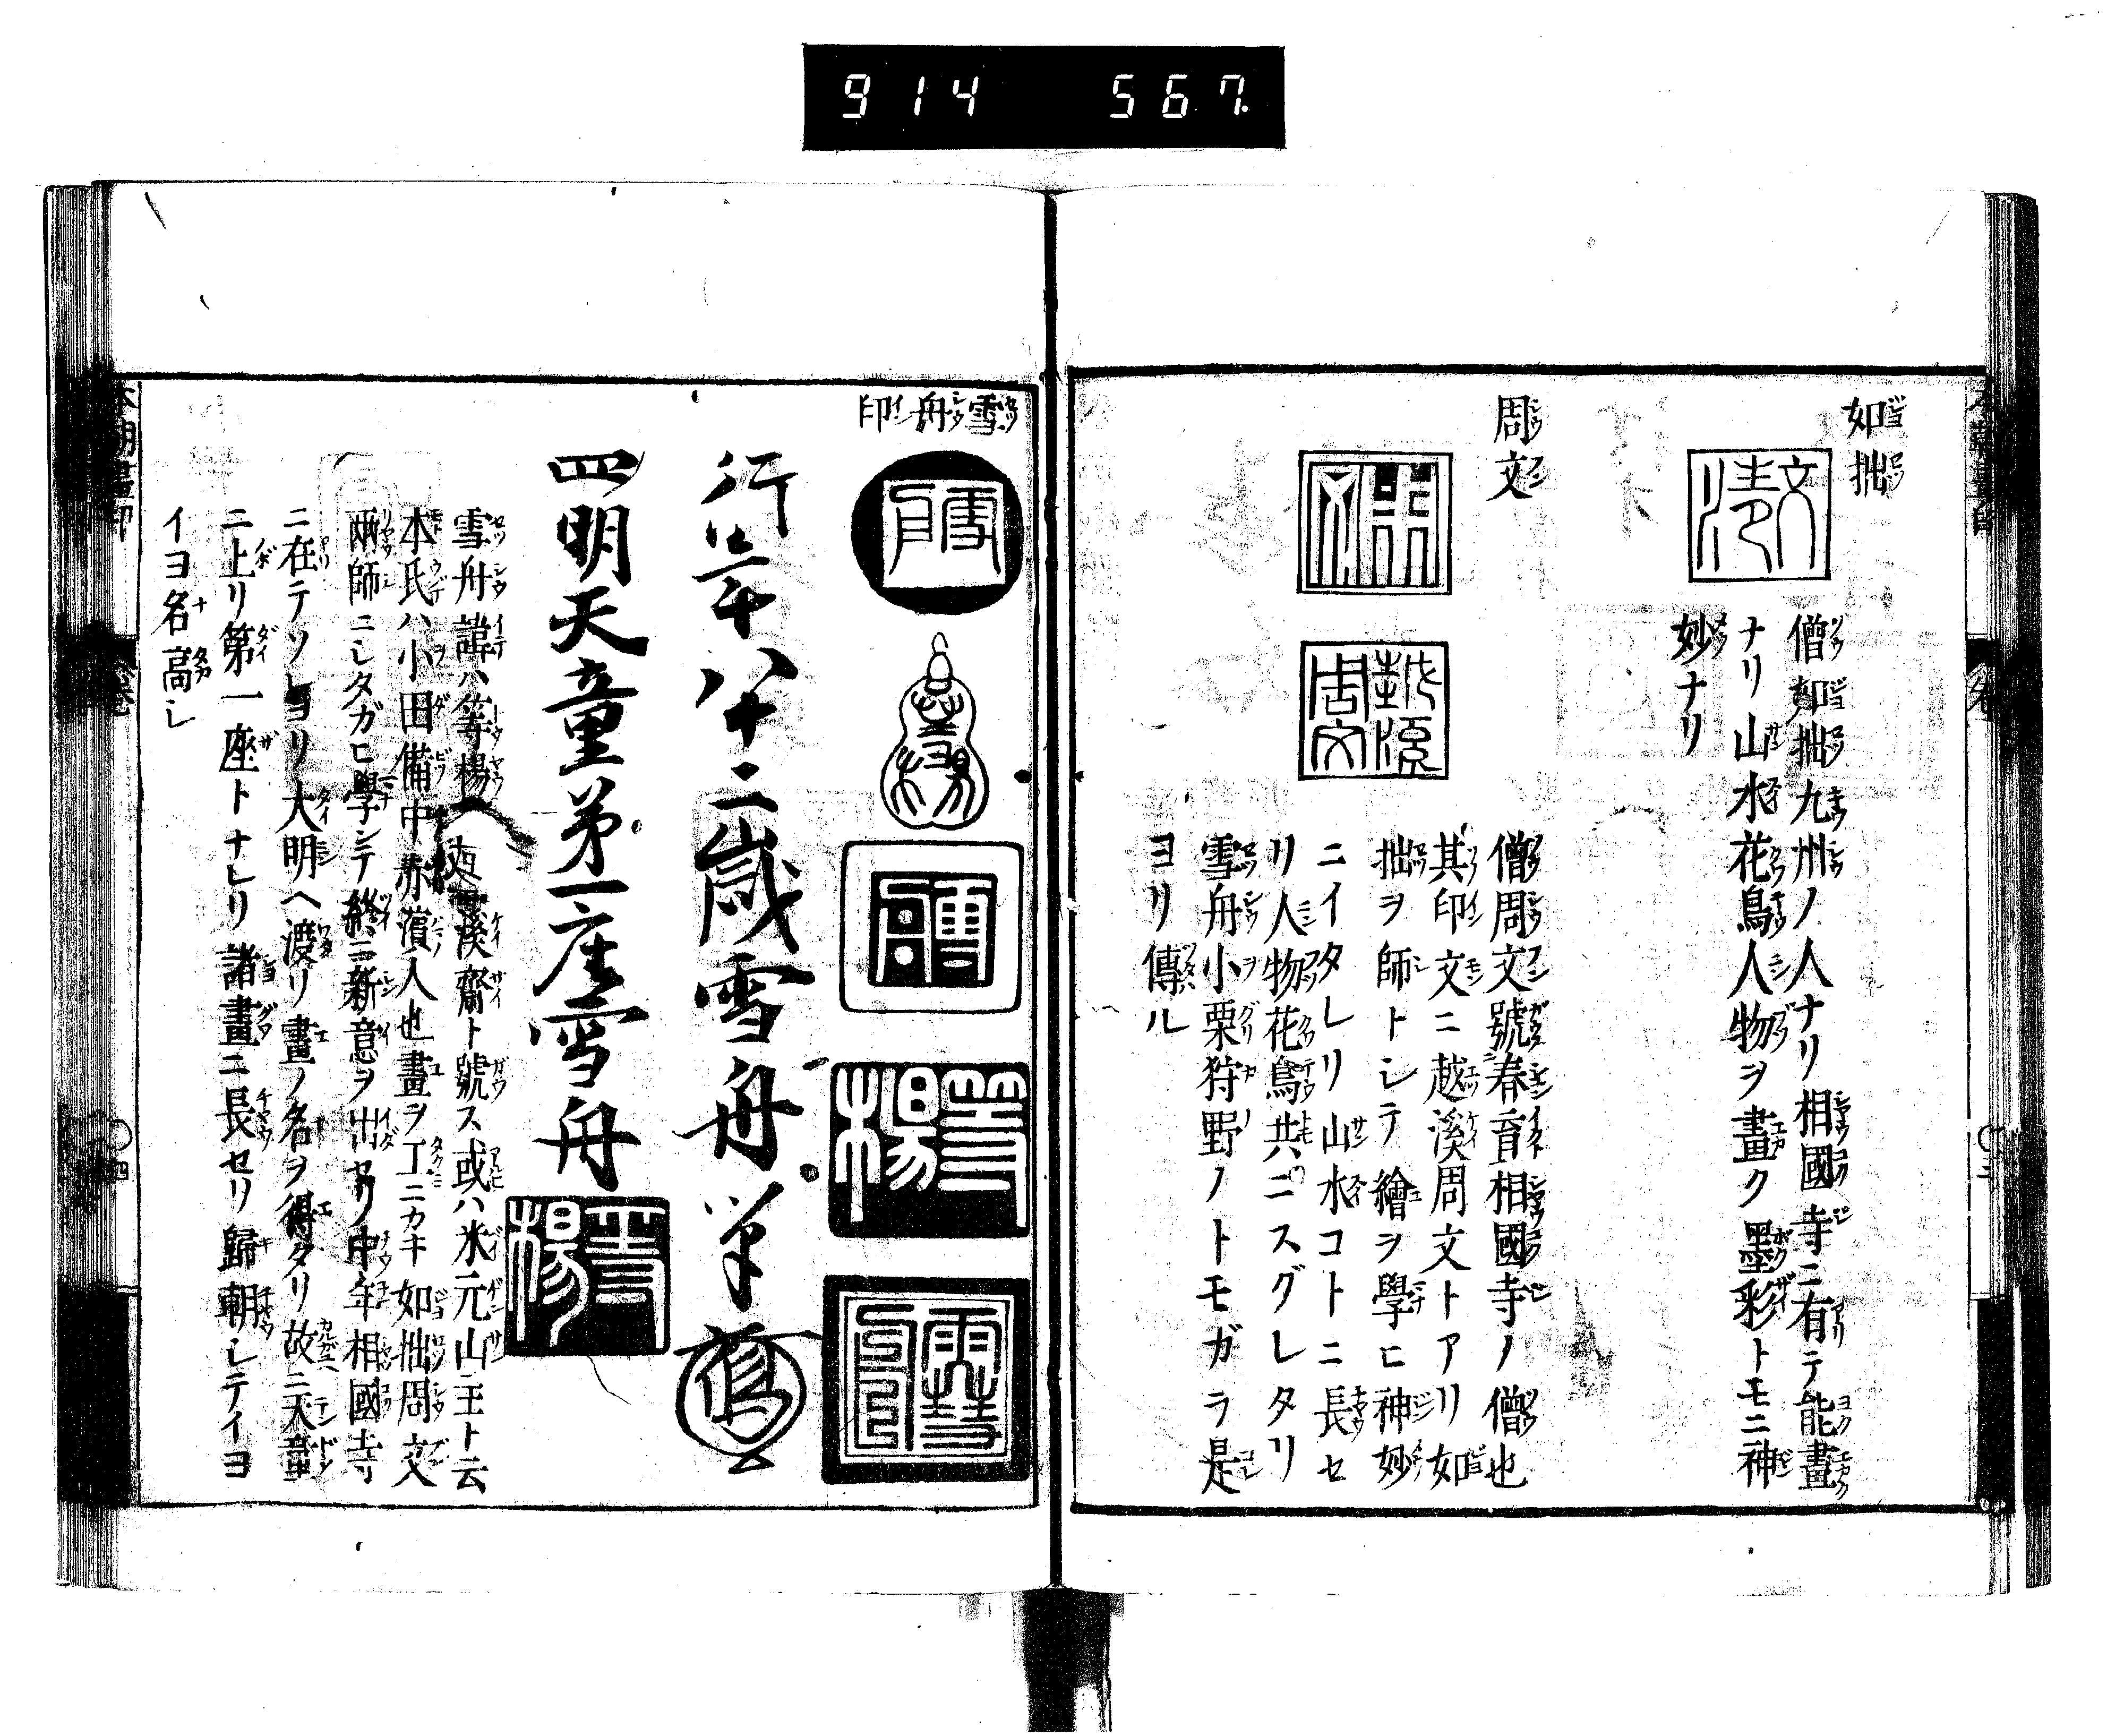 914 567
如拙
僧如拙九州ノ人ナリ相國寺ニ有テ能畫
ナリ山水花鳥人物ヲ畫ク墨彩トモニ神
妙ナリ
周文
僧周文號春育相國寺ノ僧也
其印文ニ越溪周文トアリ如
拙ヲ師トシテ繪ヲ學ヒ神妙
ニイタレリ山水コトニ長セ
リ人物花鳥共ニスグレタリ
雪舟小栗狩野ノトモガラ是
ヨリ傳ル
雪舟印
等楊
行年八十二歳雪舟筆
四明天童第一座雪舟
等楊
雪舟諱ハ等楊溪齋ト號ス或ハ米元山主ト云
本氏ハ小田備中赤濵ノ人也畫ヲ工ニカキ如拙周文
兩師ニシタガヒ學シテ終ニ新意ヲ出セリ中年相國寺
ニ在テソレヨリ大明ヘ渡リ畫ノ名ヲ得タリ故ニ天童
ニ上リ第一座トナレリ諸畫ニ長セリ歸朝シテイヨ
イヨ名高シ